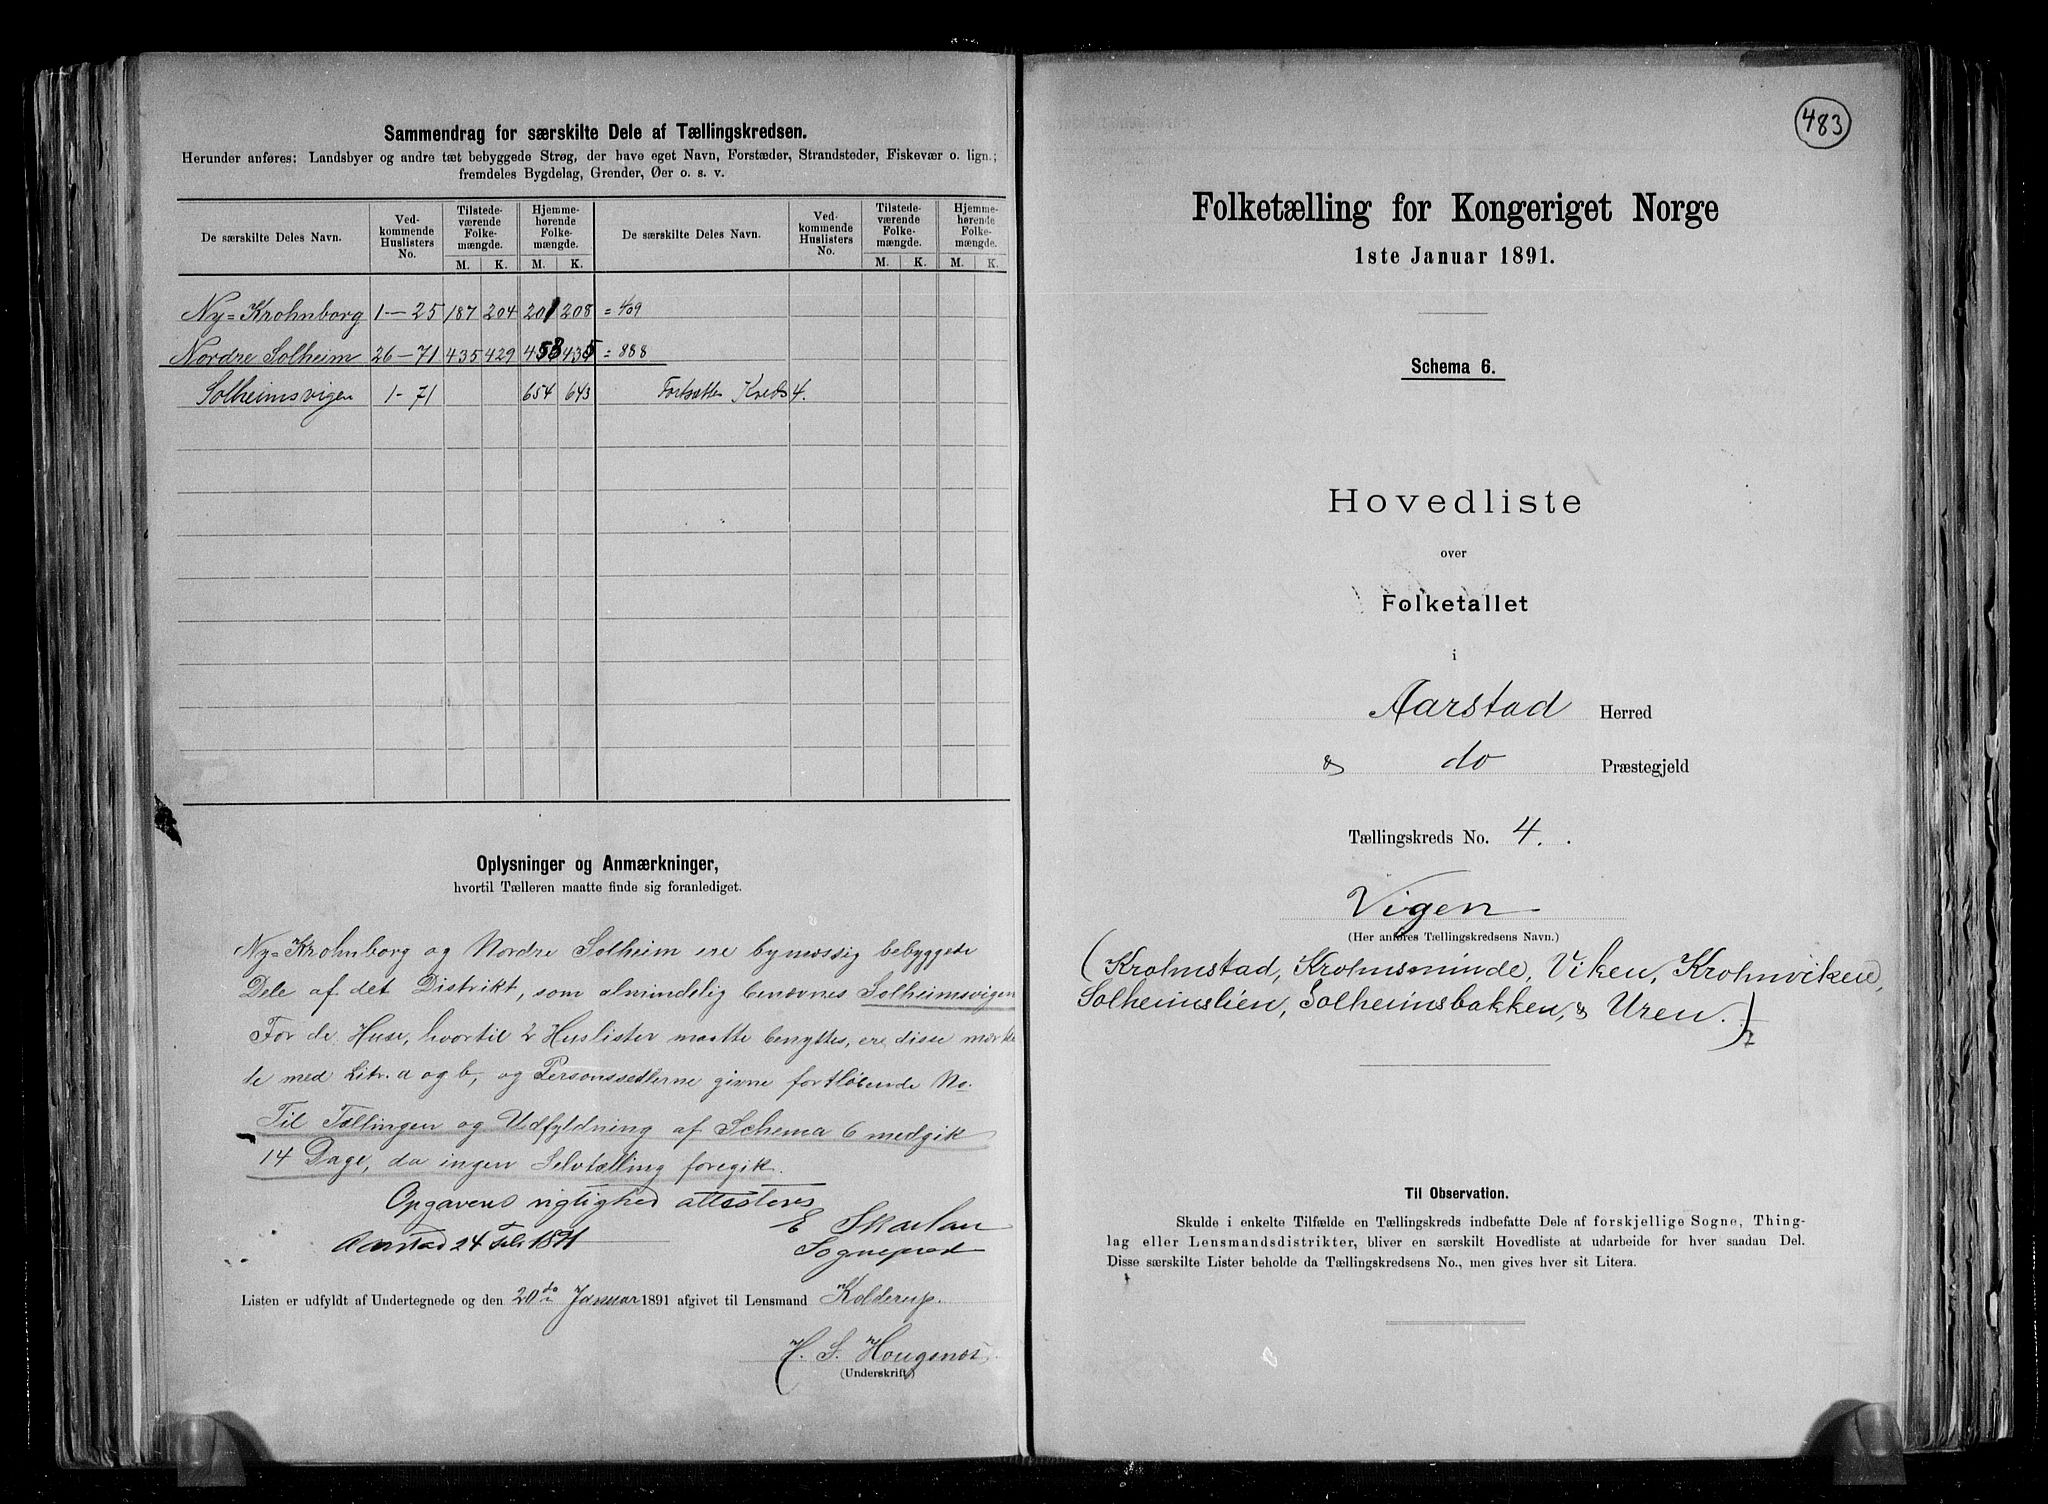 Sammendrag for særskilte Dele af Tællingskredsen.
Herunder anføres: Landsbyer og andre tæt bebyggede Strøg, der have eget Navn, Forstæder, Strandsteder, Fiskevær o. lign.;
fremdeles Bygdelag, Grender, Øer o. s. v.
De særskilte Deles Navn. Ved-kommende Huslisters No. Tilstede-værende Folke-mængde. Hjemme-hørende Folke-mængde. De særskilte Deles Navn. Ved-kommende Huslisters No. Tilstede-værende Folke-mængde. Hjemme-hørende Folke-mængde.
M. K. M. K. M. K. M. K.
Ny-Krohnborg 1-25 187 204 201 208 = 409
Nordre Solheim 26-71 435 429 453 435 = 888
Solheimsvigen 1-71 654 643 Fortsættes Kreds 4.
Oplysninger og Anmærkninger,
hvortil Tælleren maatte finde sig foranlediget.
Ny=Krohnborg og Nordre Solheim ere bymæssig bebyggede
Dele af det Distrikt, som almindelig benævnes Solheimsvigen
For de Huse, hvortil 2 Huslister maatte benyttes, ere disse mærke
de med Litr. a og b, og Personssedlerne givne fortløbende No.
Til Tællingen og Udfyldning af Schema 6 medgik
14 Dage, da ingen Selvtælling foregik.
Opgavens rigtighed attesteres
Aarstad 24 Feb 1891
E Skarlan
Sogneprest
Listen er udfyldt af Undertegnede og den 20de Januar 1891 afgivet til Lensmand Kolderup.
H. S. Hougsnæs
(Underskrift.)
483
Folketælling for Kongeriget Norge
1ste Januar 1891.
Schema 6.
Hovedliste
over
Folketallet
i
Aarstad Herred
& do Præstegjeld
Tællingskreds No. 4.
Vigen
(Her anføres Tællingskredsens Navn.)
(Krohnstad, Krohnsminde, Viken, Krohnviken,
Solheimslien, Solheimsbakken, & Uren.)
Til Observation.
Skulde i enkelte Tilfælde en Tællingskreds indbefatte Dele af forskjellige Sogne, Thing-
lag eller Lensmandsdistrikter, bliver en særskilt Hovedliste at udarbeide for hver saadan Del.
Disse særskilte Lister beholde da Tællingskredsens No., men gives hver sit Litera.